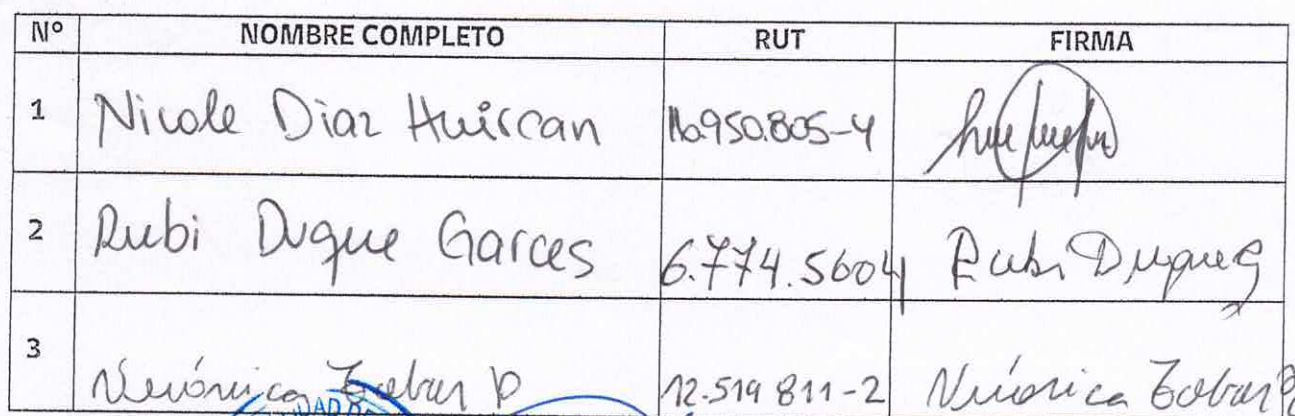 N° NOMBRE COMPLETO RUT FIRMA
1 Nicole Diaz Huircan 16.950.805-4
2 Rubi Duque Garces 6.774.5604 Rubi Duque G
3 Verónica Tobar P 12.519 811-2 Verónica Tobar P
DAD DE